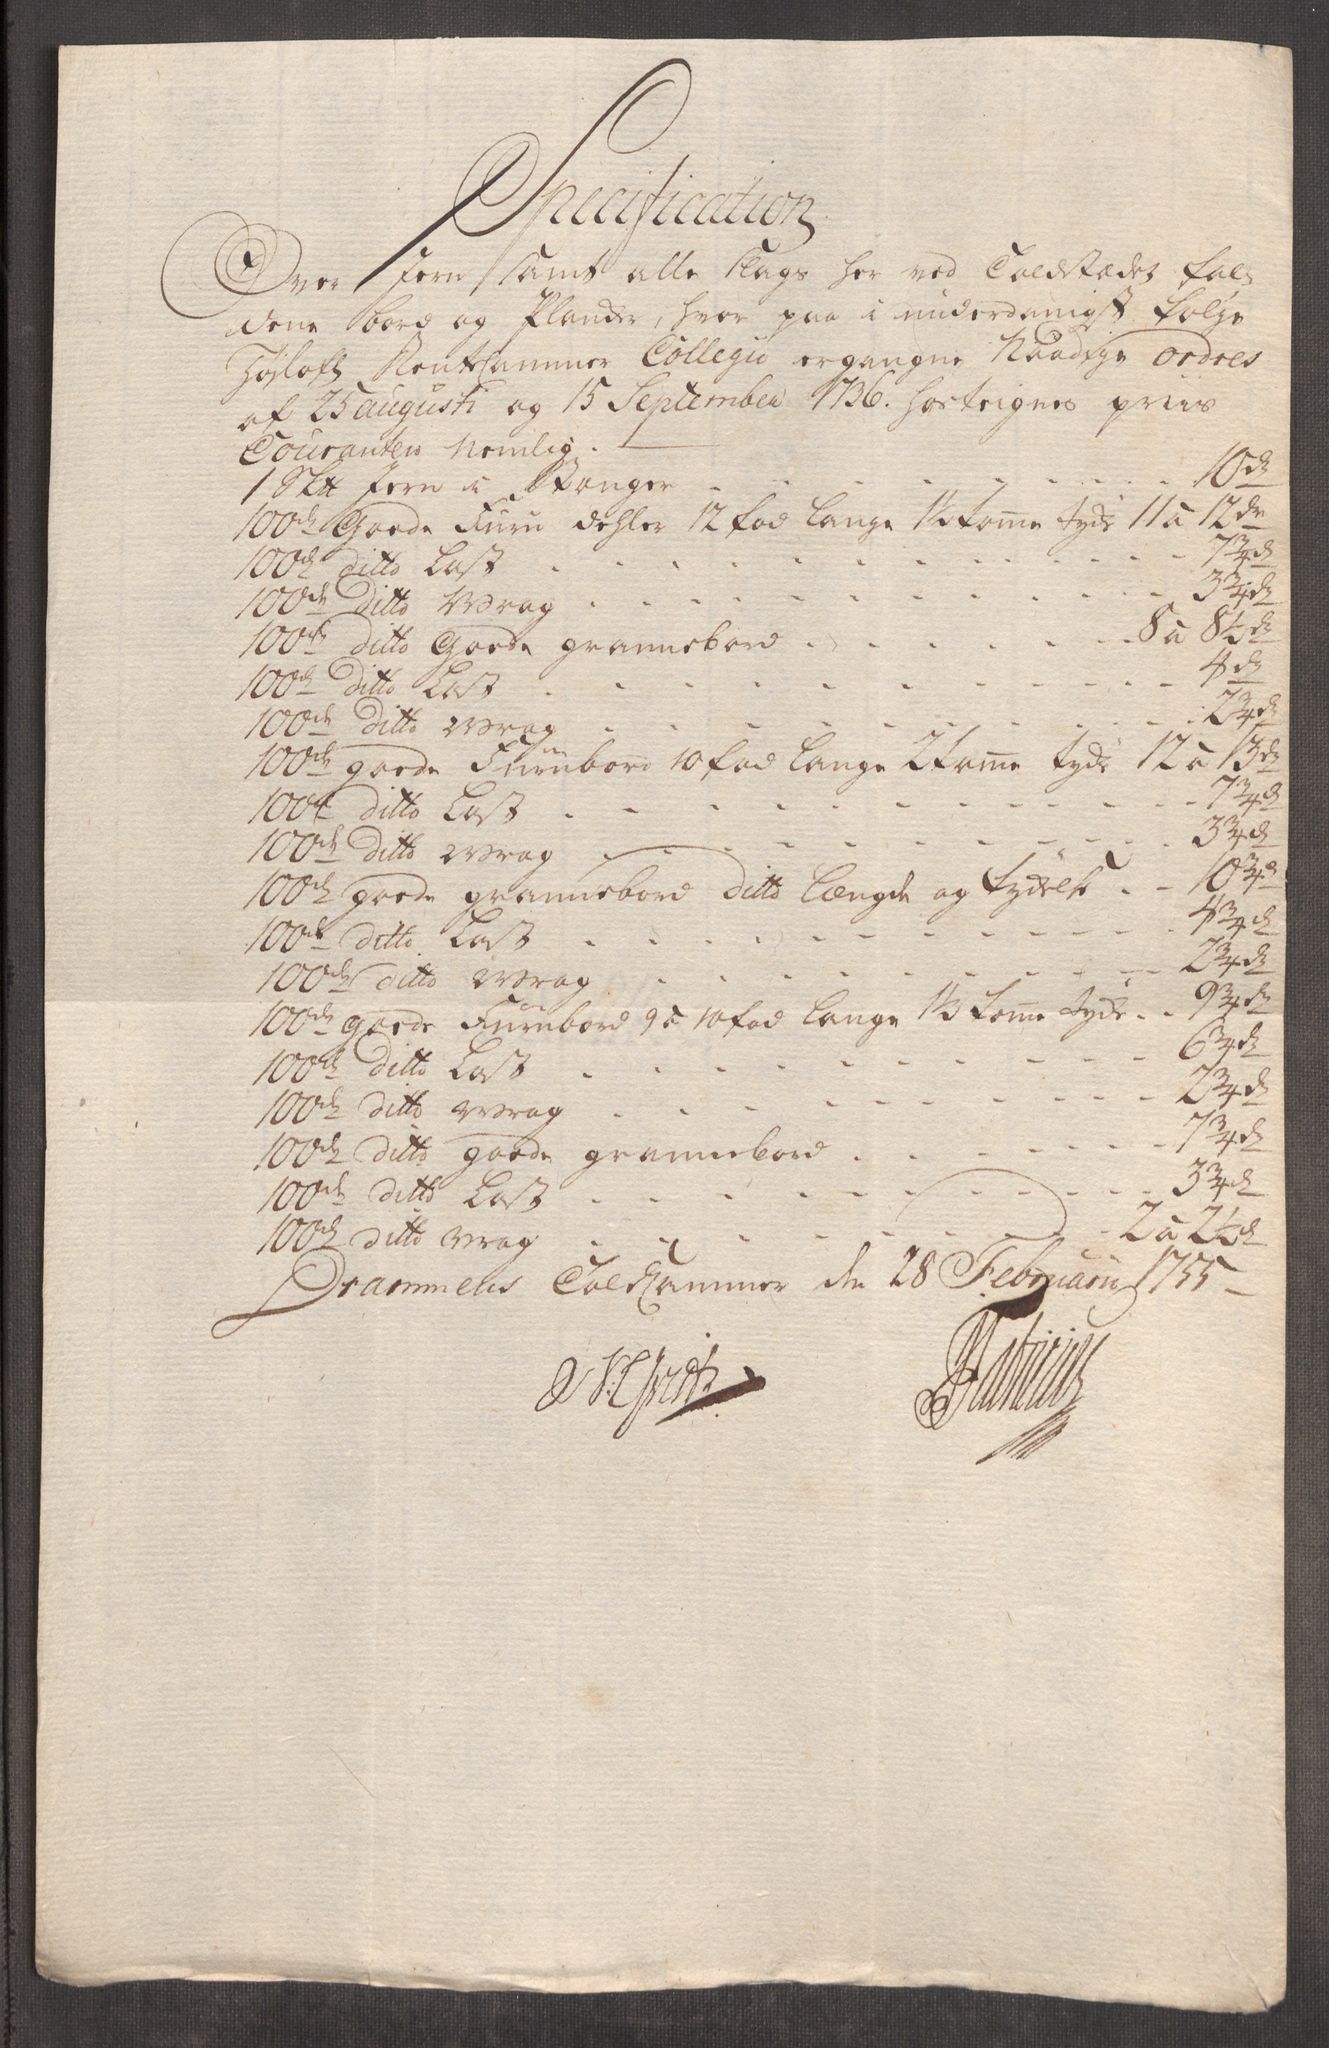 Specification
Over Jern samt alle slags her ved Toldstædet fal-
dene bord og Plancker, hvor paa i underdanigst følge
Høylofl Rentecammer Collegii ergangne Naadige ordres
af 25 augusti og 15 September 1736. hosteignes priis
Couranten Nemlig.
1 Sk℔ Jern i Stanger - - - - - - - - 10 dr
100de Goede Furu dehler 12 fod lange 1½ tomme tyde 11 a 12 dr
100de ditto Last - - - - - - - - 7¾ dr
100de ditto Wrag - - - - - - - - 3¾ dr
100de ditto Goede grannebord - - - - - - 8 a 8½ dr
100de ditto Last - - - - - - - - 4 dr
100de ditto Wrag - - - - - - - - 2¾ dr
100de goede Furubord 10 fod lange 2 tomme tyde 12 a 13 dr
100de ditto Last - - - - - - - - 7¾ dr
100de ditto Wrag - - - - - - - - 3¾ dr
100de goede grannebord ditto Længde og tydelse - - 10¾ dr
100de ditto Last - - - - - - - - 4¾ dr
100de ditto Wrag - - - - - - - - 2¾ dr
100de goede Furubord 9 a 10 fod lange 1½ tomme tyde - - 9¾ dr
100de ditto Last - - - - - - - - 6¾ dr
100de ditto Wrag - - - - - - - - 2¾ dr
100de ditto goede grannebord - - - - - - 7¾ dr
100de ditto Last - - - - - - - - 3¾ dr
100de ditto Wrag - - - - - - - - 2 a 2½ dr
Drammens Toldcammer den 28 Februarii 1755